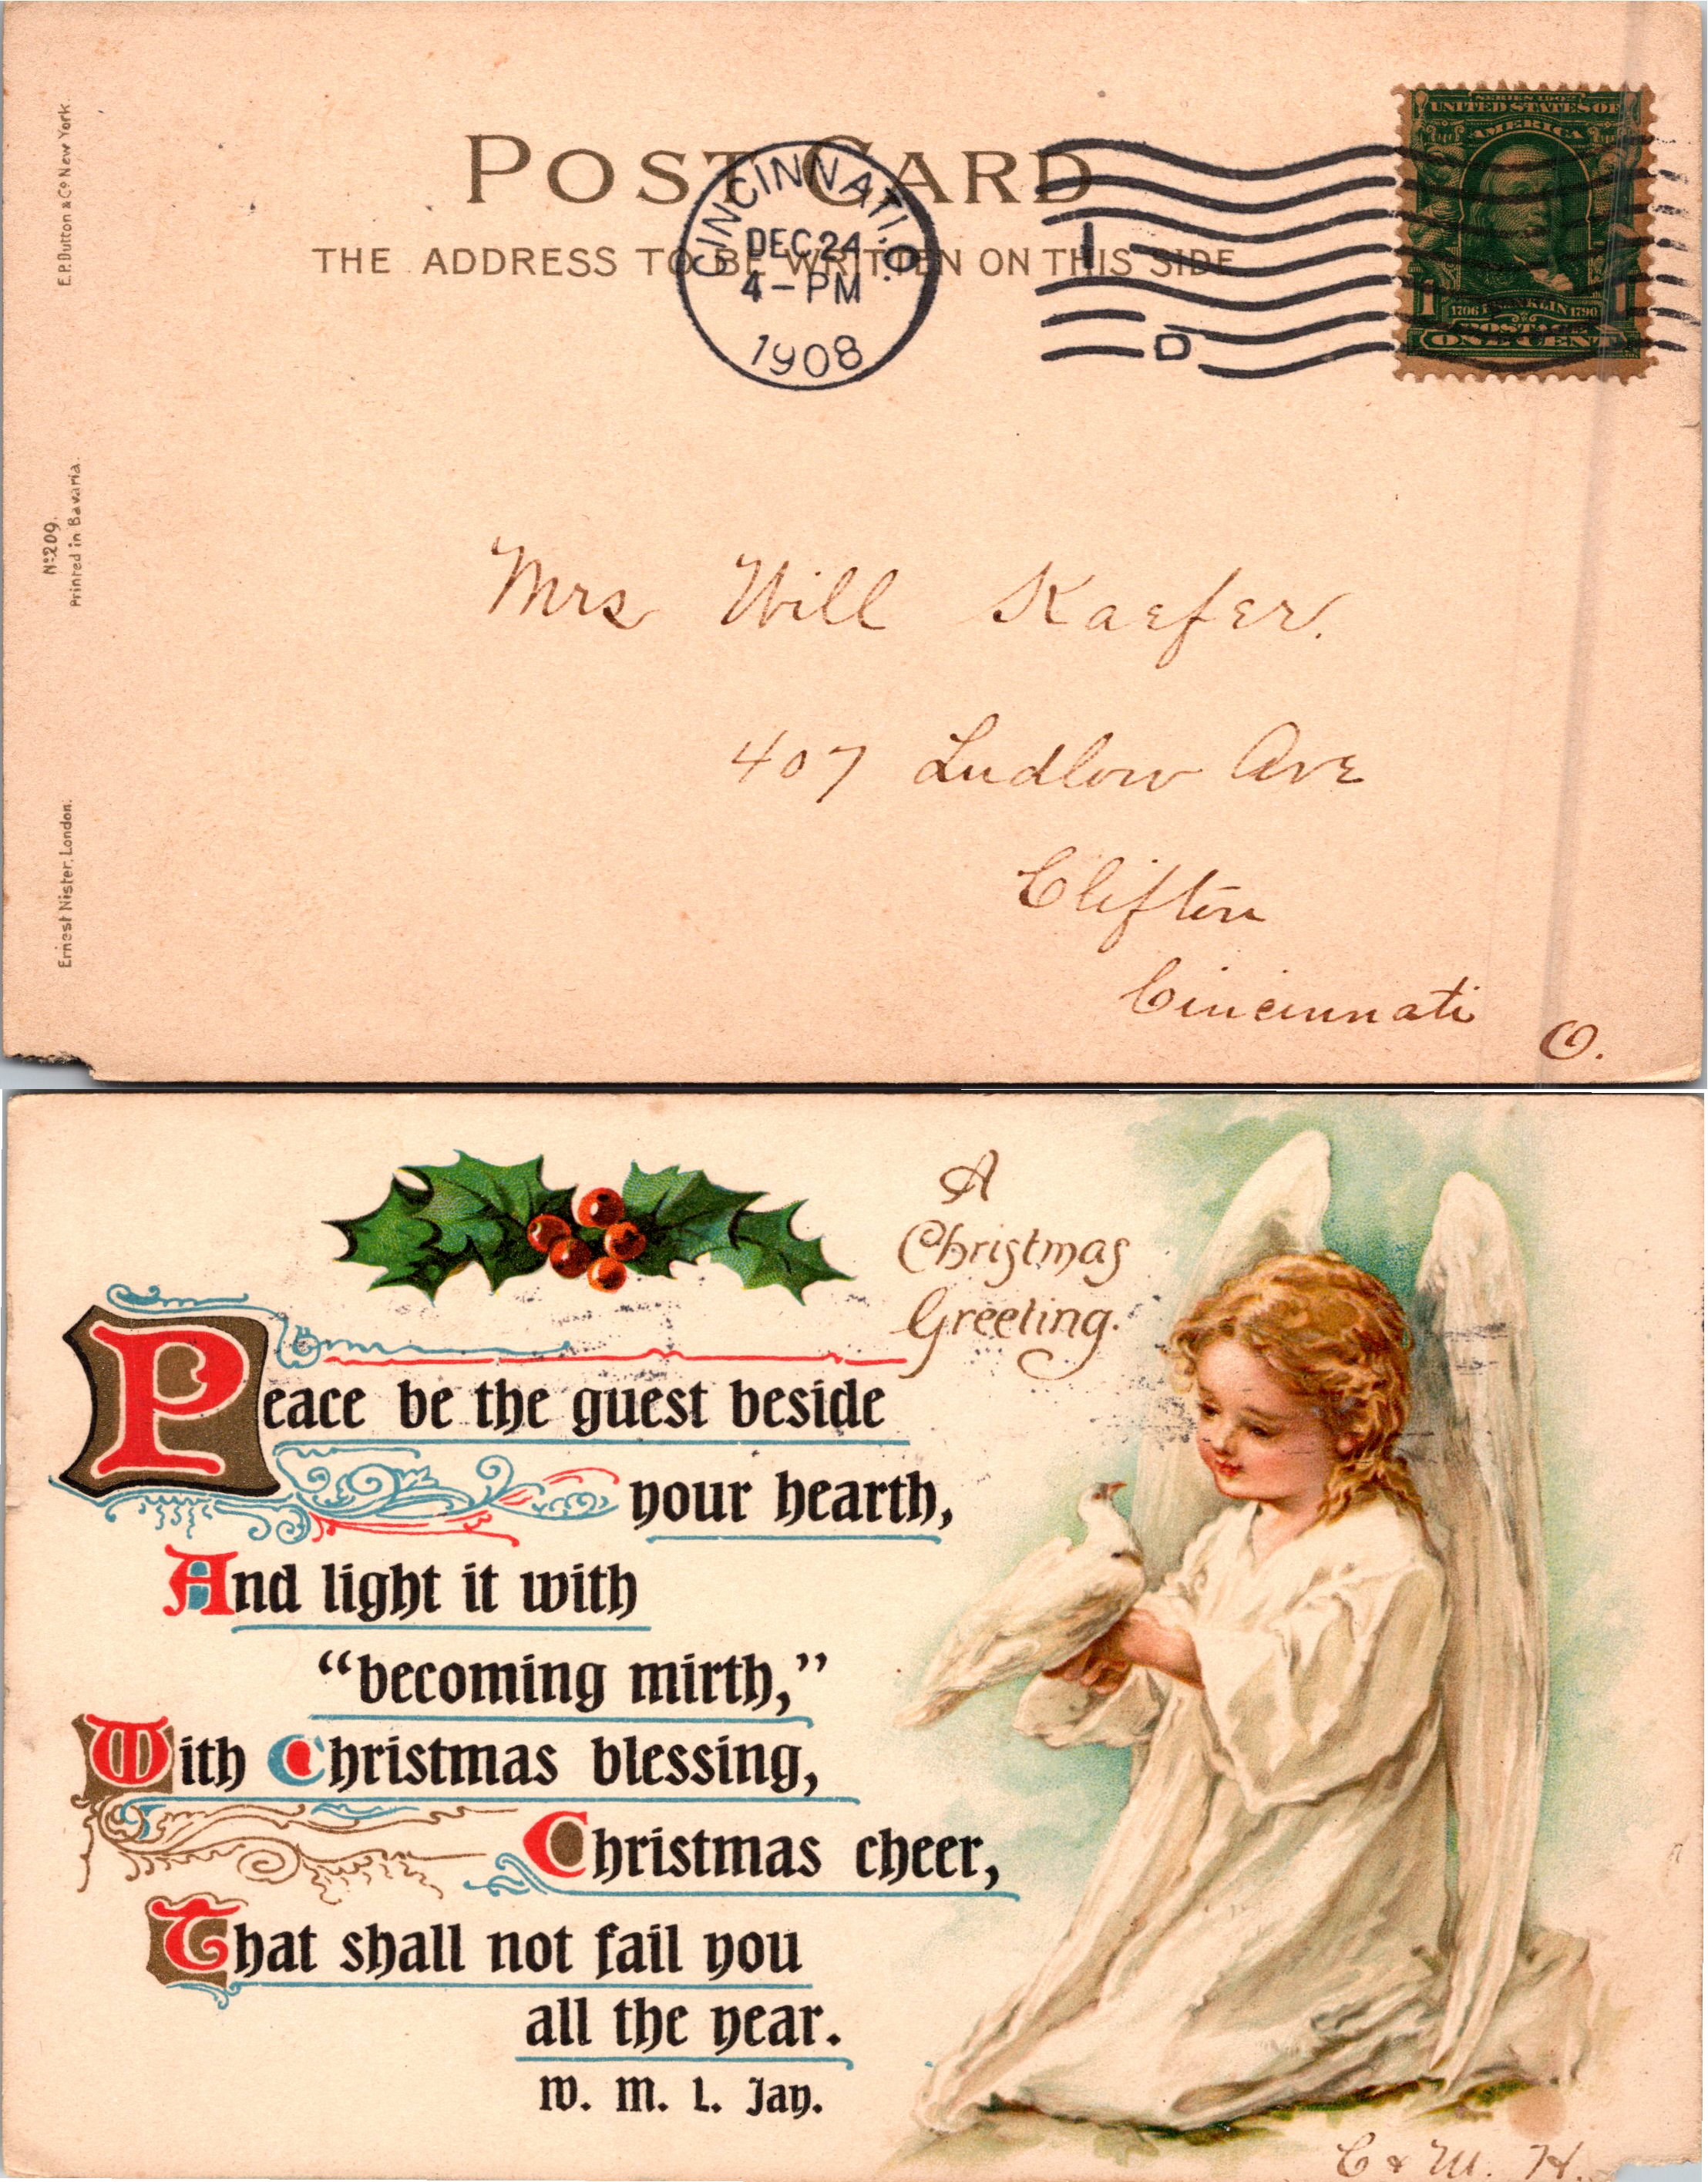 POST CARD
THE ADDRESS TO BE WRITTEN ON THIS SIDE
CINCINNATI, O.
DEC 24
4-PM
1908
1
D
SERIES 1902
UNITED STATES OF
AMERICA
1706 FRANKLIN 1790
1 POSTAGE 1
ONE CENT
E.P. Dutton & Co New York.
No 209.
Printed in Bavaria.
Ernest Nister, London.
Mrs Will Kaefer.
407 Ludlow Ave
Clifton
Cincinnati
O.
A
Christmas
Greeting.
Peace be the guest beside
your hearth,
And light it with
“becoming mirth,”
With Christmas blessing,
Christmas cheer,
That shall not fail you
all the year.
W. M. L. Jay.
C & M. H.